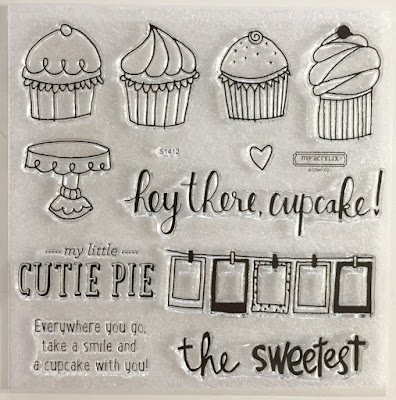 S1412
my acrylix®
hey there, cupcake!
my little
CUTIE PIE
Everywhere you go,
take a smile and
a cupcake with you!
the sweetest